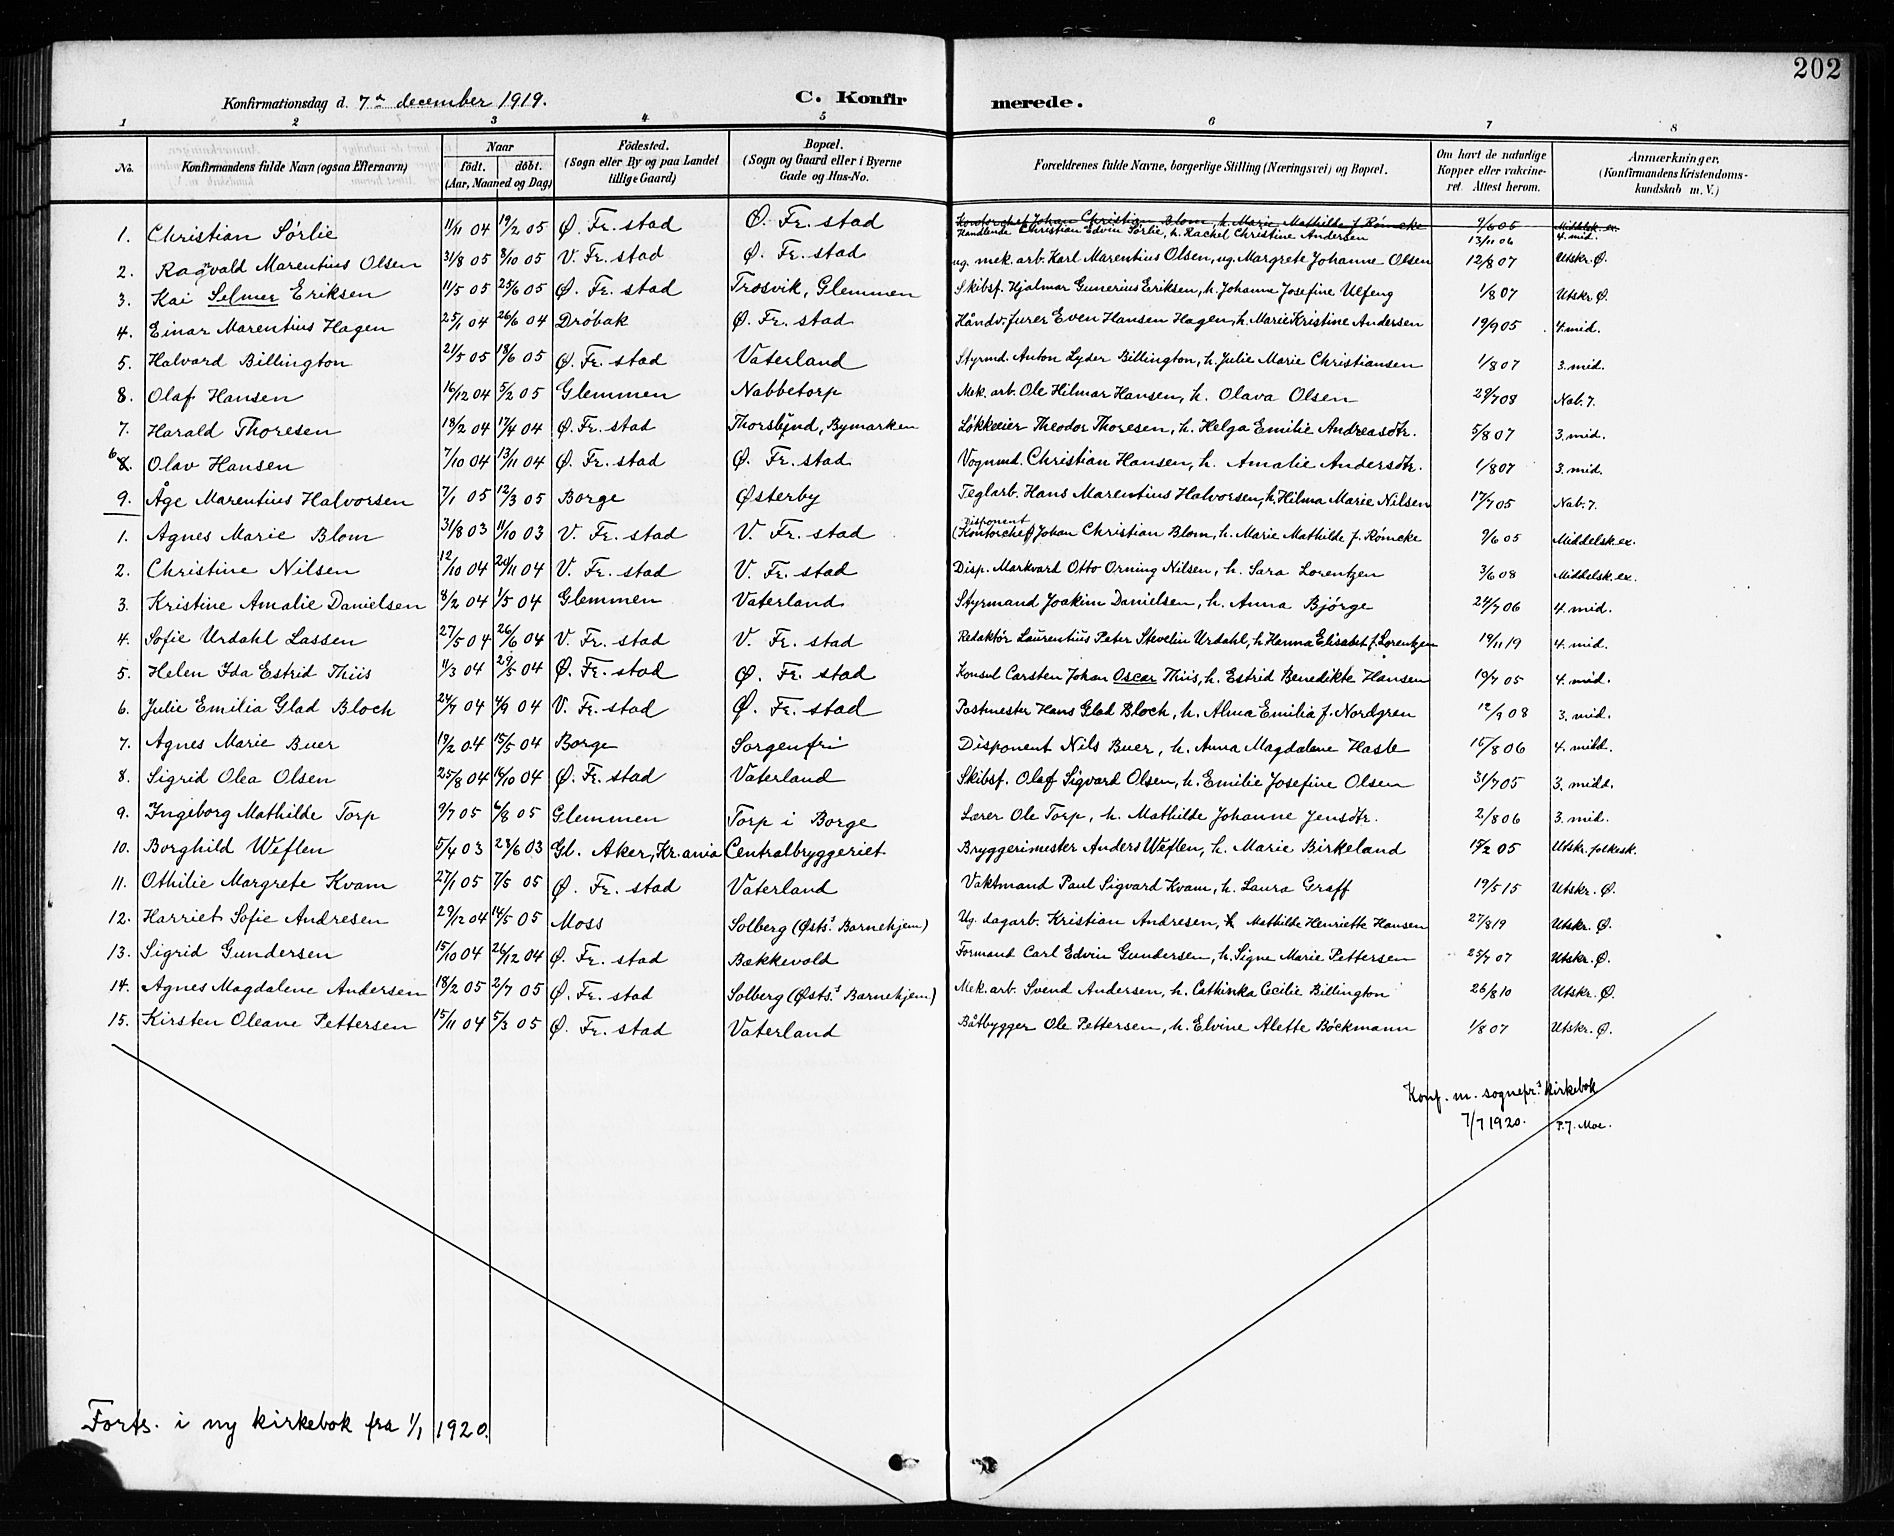 202
Konfirmationsdag d. 7de december 1919. C. Konfirmerede.
1 2 3 4 5 6 7 8
No. Konfirmandens fulde Navn (ogsaa Efternavn) Naar født. døbt. (Aar, Maaned og Dag) Fødested. (Sogn eller By og paa Landet tillige Gaard) Bopæl. (Sogn og Gaard eller i Byerne Gade og Hus-No. Forældrenes fulde Navne, borgerlige Stilling (Næringsvei) og Bopæl. Om havt de naturlige Kopper eller vakcineret. Attest herom. Anmærkninger. (Konfirmandens Kristendomskundskab m. V.)
Kontorchef Johan Christian Blom, h. Marie Mathilde f. Rømcke 9/6 05 Middelsk. ex.
1. Christian Sørlie 11/11 04 19/2 05 Ø. Fr.stad Ø. Fr.stad Handlende Christian Edvin Sørlie, h. Rachel Christine Andersen 13/11 06 4. mid.
2. Ragnvald Marentius Olsen 31/8 05 8/10 05 V. Fr.stad Ø. Fr.stad ug. mek. arb. Karl Marentius Olsen, ug. Margrete Johanne Olsen 12/8 07 Utskr. Ø.
3. Kai Selmer Eriksen 11/5 05 25/6 05 Ø. Fr.stad Trosvik, Glemmen Skibsf. Hjalmar Gunerius Eriksen, h. Johanne Josefine Ulfeng 1/8 07 Utskr. Ø.
4. Einar Marentius Hagen 25/1 04 26/6 04 Drøbak Ø. Fr.stad Håndv. furer Even Hansen Hagen, h. Marie Kristine Andersen 19/9 05 4. mid.
5. Halvard Billington 21/5 05 18/6 05 Ø. Fr.stad Vaterland Styrmd. Anton Lyder Billington, h. Julie Marie Christiansen 1/8 07 3. mid.
8. Olaf Hansen 16/12 04 5/2 05 Glemmen Nabbetorp Mek. arb. Ole Hilmar Hansen, h. Olava Olsen 29/7 08 Nab. 7.
7. Harald Thoresen 18/2 04 17/4 04 Ø. Fr.stad Thorslund, Bymarken Løkkeeier Theodor Thoresen, h. Helga Emilie Andreasdtr. 5/8 07 3. mid.
6 8. Olav Hansen 7/10 04 13/11 04 Ø. Fr.stad Ø. Fr.stad Vognmd. Christian Hansen, h. Amalie Andersdtr. 1/8 07 3. mid.
9. Åge Marentius Halvorsen 7/1 05 12/3 05 Borge Østerby Teglarb. Hans Marentius Halvorsen, h. Hilma Marie Nilsen 17/7 05 Nab. 7.
1. Agnes Marie Blom 31/8 03 11/10 03 V. Fr.stad V. Fr.stad Disponent (Kontorchef) Johan Christian Blom, h. Marie Mathilde f. Rømcke 9/6 05 Middelsk. ex.
2. Christine Nilsen 12/10 04 20/11 04 V. Fr.stad V. Fr.stad Disp. Markvard Otto Orning Nilsen, h. Sara Lorentzen 3/6 08 Middelsk. ex.
3. Kristine Amalie Danielsen 8/2 04 1/5 04 Glemmen Vaterland Styrmand Joakim Danielsen, h. Anna Bjørge 24/7 06 4. mid.
4. Sofie Urdahl Lassen 27/5 04 26/6 04 V. Fr.stad V. Fr.stad Redaktør Laurentius Peter Stevelin Urdahl, h. Hanna Elisabet f. Lorentzen 19/11 19 4. mid.
5. Helen Ida Estrid Thiis 11/3 04 29/5 04 Ø. Fr.stad Ø. Fr.stad Konsul Carsten Johan Oscar Thiis, h. Estrid Benedikte Hansen 19/7 05 4. mid.
6. Julie Emilia Glad Bloch 24/7 04 4/9 04 V. Fr.stad Ø. Fr.stad Postmester Hans Glad Bloch, h. Alma Emilia f. Nordgren 12/9 08 3. mid.
7. Agnes Marie Buer 19/2 04 15/5 04 Borge Sorgenfri Disponent Nils Buer, h. Anna Magdalene Hasle 15/8 06 4. midd.
8. Sigrid Olea Olsen 25/8 04 16/10 04 Ø. Fr.stad Vaterland Skibsf. Olaf Sigvard Olsen, h. Emilie Josefine Olsen 31/7 05 3. midd.
9. Ingeborg Mathilde Torp 9/7 05 6/8 05 Glemmen Torp i Borge Lærer Ole Torp, h. Mathilde Johanne Jensdtr. 2/8 06 3. mid.
10. Borghild Weflen 5/4 03 23/6 03 Gl. Aker, Kr.ania Centralbryggeriet Bryggerimester Anders Weflen, h. Marie Birkeland 17/2 05 Utskr. folkesk.
11. Othilie Margrete Kvam 27/1 05 7/5 05 Ø. Fr.stad Vaterland Vaktmand Paul Sigvard Kvam, h. Laura Graff 19/5 15 Utskr. Ø.
12. Harriet Sofie Andresen 29/12 04 14/5 05 Moss Solberg (Østs.s Barnehjem) Ug. dagarb. Kristian Andresen, h. Mathilde Henriette Hansen 27/8 19 Utskr. Ø.
13. Sigrid Gundersen 15/10 04 26/12 04 Ø. Fr.stad Bækkevold Formand Carl Edvin Gundersen, h. Signe Marie Pettersen 25/7 07 Utskr. Ø.
14. Agnes Magdalene Andersen 18/2 05 2/7 05 Ø. Fr.stad Solberg (Østs.s Barnehjem) Mek. arb. Svend Andersen, h. Cathinka Cecilie Billington 26/8 10 Utskr. Ø.
15. Kirsten Oleane Pettersen 15/11 04 5/3 05 Ø. Fr.stad Vaterland Båtbygger Ole Pettersen, h. Elvine Alette Böckmann 1/8 07 Utskr. Ø.
Konf. m. sognepr.s kirkebok
7/7 1920. P. J. Moe.
Forts. i ny kirkebok fra 1/1 1920.